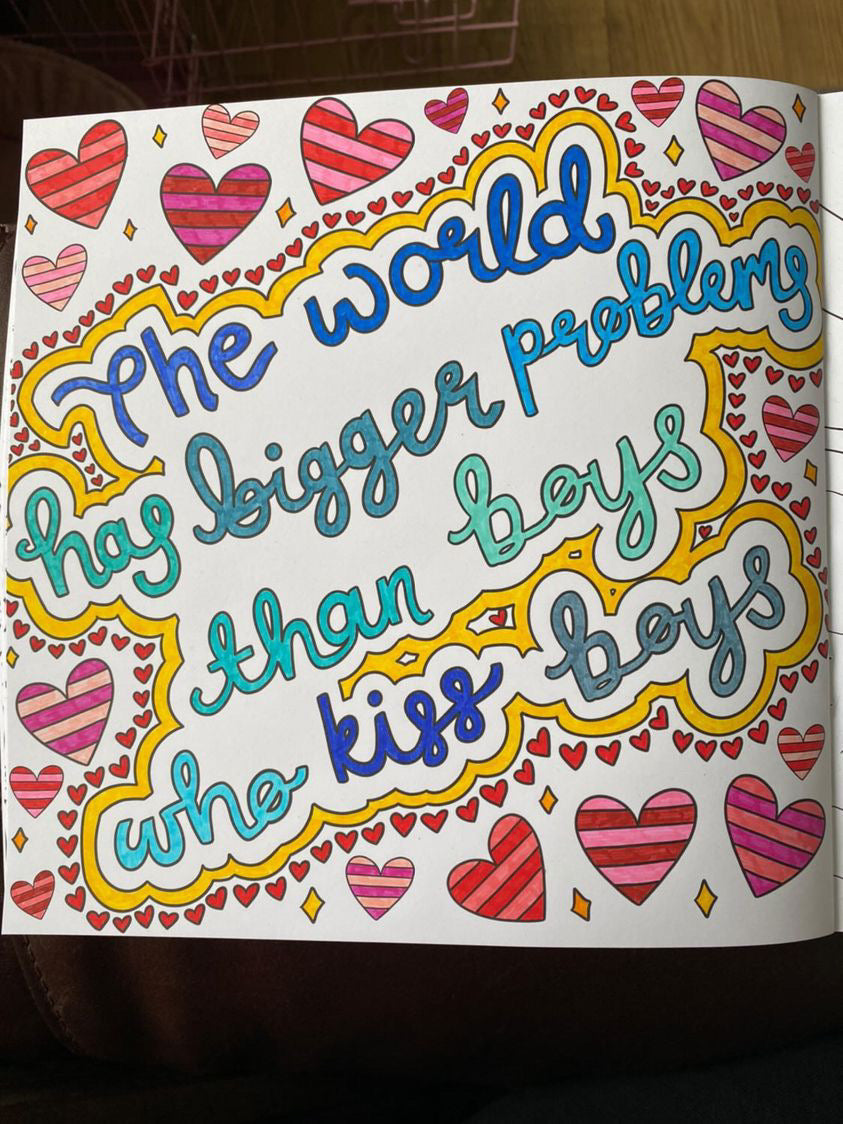 The world
has bigger problems
than boys
who kiss boys